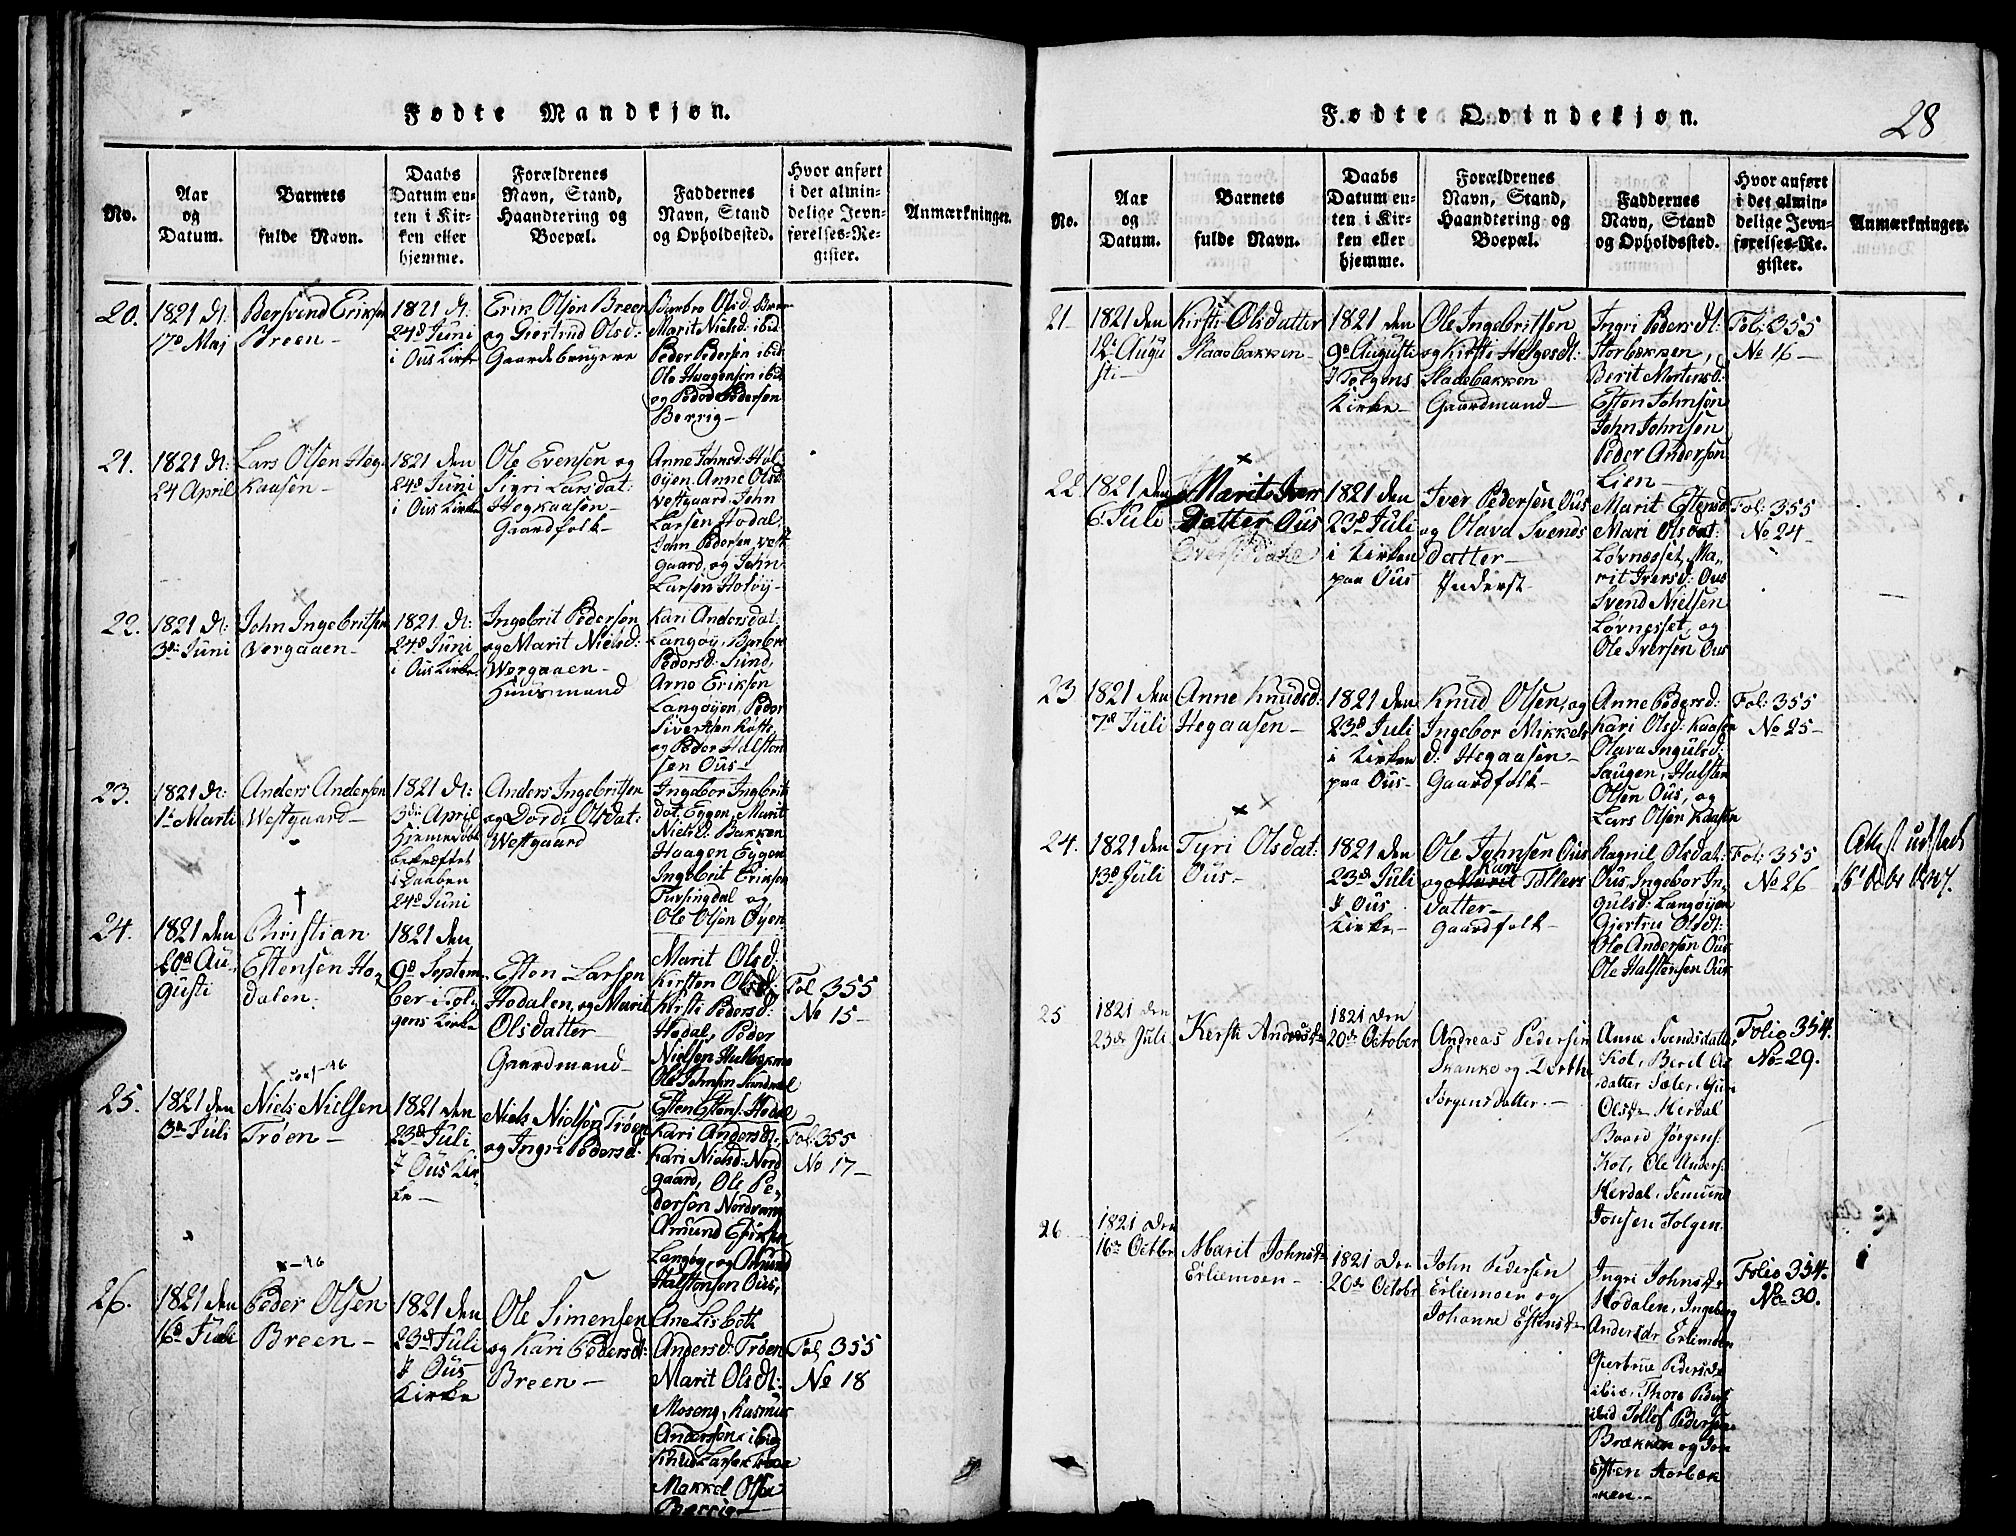 Fødte Mandkjøn.
No.
Aar
og
Datum.
Barnets
fulde Navn.
Daabs
Datum en-
ten i Kir-
ken eller
hjemme.
Forældrenes
Navn, Stand,
Haandtering og
Boepæl.
Faddernes
Navn, Stand
og Opholdssted.
Hvor anført
i det almin-
delige Jevn-
førelses-Re-
gister.
Anmærkninger.
20.
1821 dt:
17d Maj
Bersvend Eriksen
Breen-
1821 dt.
24d Juni
i Ous Kirke
Erik Olsen Breen
og Giertrud Olsd:
Gaardebrugere
Barbro Olsd. Breen
Marit Nielsd: ibid
Peder Pedersen ibid
Ole Haagensen ibid
og Peder Pedersen
Berrig-
21.
1821 dt:
24 April
Lars Olsen Heg-
kaasen-
1821 den
24d Juni
i Ous Kirke
Ole Evensen og
Sigri Larsdat:
Hegkaasen-
Gaardfolk-
Anne Johnsd: Hol-
øyen, Anne Olsd
Vestgaard, John
Larsen Hodal,
John Pedersen Vest
gaard, og John
Larsen Holøy-
22.
1821 dt:
3de Juni
John Ingebritsen
Vergaaen-
1821. dt:
24d Juni
i Ous Kirke
Ingebrit Pedersen
og Marit Nielsd:
Wergaaen-
Huusmand
Kari Andersdat.
Langøy, Barbro
Pedersd: Sund,
Arne Eriksen
Langøyen, Peder
Sivertsen
og Peder Halsten
sen Ous-
23.
1821 dt:
1t Marti
Anders Andersen
Westgaard-
1821 dt:
3de April
Hjemmedøbt
bekræftet
i Daaben
24d Juni
Anders Ingebritsen
og Dordi Olsdat:
Westgaard
Ingebor Ingebrits
dat. Eggen, Marit
Nielsd: Bakken
Haagen Eggen
Ingebrit Eriksen
og
Ole Olsen Øyen
24.
1821 den
20d Au-
gusti
†
Christian
Estensen Ho-
dalen.
1821 den
9d Septem
ber i Tol-
gens Kirke
Esten Larsen
Hodalen, og Marit
Olsdatter
Gaardmand-
Marit Olsd:
Kirsten Olsd:
Kirsti Pedersd:
Hodal, Peder
Nielsen
Ole Johnsen
Esten Estens: Hodal
Fol 355
No 15-
25.
1821 den
3de Juli
Niels Nielsen
Trøen-
1821 den
23d Juli
I Ous Kir-
ke-
Niels Nielsen Trøen
og Ingri Pedersd:
Kari Andersdt.
Kari Nielsd: Nord
gaard, Ole Pe-
dersen Nordvang
Amund Eriksen
Langøy, og Amund
Halstensen Ous,
Fol: 355
No 17-
26.
1821 den
16d Juli
Peder Olsen
Breen-
1821 den
23d Juli
I Ous
Kirke
Ole Simensen
og Kari Pedersdt:
Breen-
Ane Lisbeth
Andersd: Trøen
Marit Olsdt:
Moseng, Rasmus
Andersen ibid
Knud Larsen
Mekkel Olsen
Berrig-
Fol 355
No 18
Fødte Qvindekjøn.
28
No.
Aar
og
Datum.
Barnets
fulde Navn.
Daabs
Datum en-
ten i Kir-
ken eller
hjemme.
Forældrenes
Navn, Stand,
Haandtering og
Boepæl.
Faddernes
Navn, Stand
og Opholdssted.
Hvor anført
i det almin-
delige Jevn-
førelses-Re-
gister.
Anmærkninger.
21-
1821 den
12t Augu
sti-
Kirsti Olsdatter
Staaebakken-
1821 den
9d Augusti
I Tolgens
Kirke-
Ole Ingebritsen
og Kirsti Helgesdt:
Stadebakken
Gaardmand-
Ingri Pedersdt:
Storbekken,
Berit Mortensd:
Esten Johnsen
John Johnsen
Peder Andersen
Lien-
Fol: 355
No 16-
22.
1821 den
6t Juli
Marit Ivers
Datter Ous
1821 den
23d Juli
i Kirken
paa Ous
Iver Pedersen Ous
og Olava Svends
datter-
Inderst-
Marit Estensd
Mari Olsdat:
Løvnesset, Ma-
rit Iversd: Ous
Svend Nielsen
Løvnesset, og
Ole Iversen Ous
Fol: 355
No 24-
23
1821 den
7d Juli
Anne Knudsd:
Hegaasen-
1821 den
23d Juli
i Kirken
paa Ous-
Knud Olsen, og
Ingebor Mikkels
d: Hegaasen-
Gaardfolk-
Anne Pedersd:
Kari Olsd: Kaasen
Olava Ingulsd:
Saugen, Halsten
Olsen Ous, og
Lars Olsen Kaasen
Fol: 355
No 25-
24.
1821 den
13d Juli
Tyri Olsdat:
Ous-
1821 den
23d Juli
I Ous
Kirke-
Ole Johnsen Ous
Kari
og Marit Tollefs
datter-
Gaardfolk-
Ragnil, Olsdat:
Ous, Ingebor In-
gulsd: Langøyen
Gjertru Olsdt:
Ole Andersen Ous
Ole Halstensen Ous
Fol: 355
No 26-
Attest udstædt
25
1821 den
23de Juli
Kersti
1821 den
20de October
Andreas Pedersen
Skanke og Dorthe
Jørgensdatter.-
Anne Svendsdatter
Kol, Berit
datter
Olsdtr Herdal
Baard Jørgens:
Kol, Ole Anders:
Herdal,
Jonsen Tolgen.
Folio 354.
No 29.
26
1821 den
16de Octbr
Marit Johnsdtr
Erliemoen-
1821 den
20de Octobr
John Pedersen
Erliemoen og
Johanne Estensdtr
Ingri Johnsdtr
Hodalen, Ingeborg
Andersdr Erliemoen
Gjertrue Pedersdtr
ibid, Thore Peders
ibid Tollef Pedersen
Brækken og Jon
Esten Storbæk
ken.-
Folio 354.
No 30.